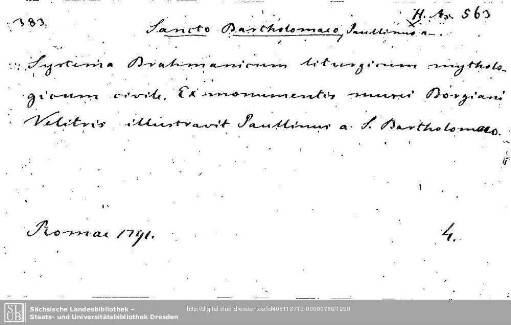 383
H. As. 563
Sancto Bartholomaeo, Paullinus a.
Systema Brahmanicum liturgicum mytholo-
gicum civile. Ex monumentis musei Borgiani
Velitris illustravit Paullinus a S. Bartholomaeo.
Romae 1791.
4.
Sächsische Landesbibliothek –
Staats- und Universitätsbibliothek Dresden